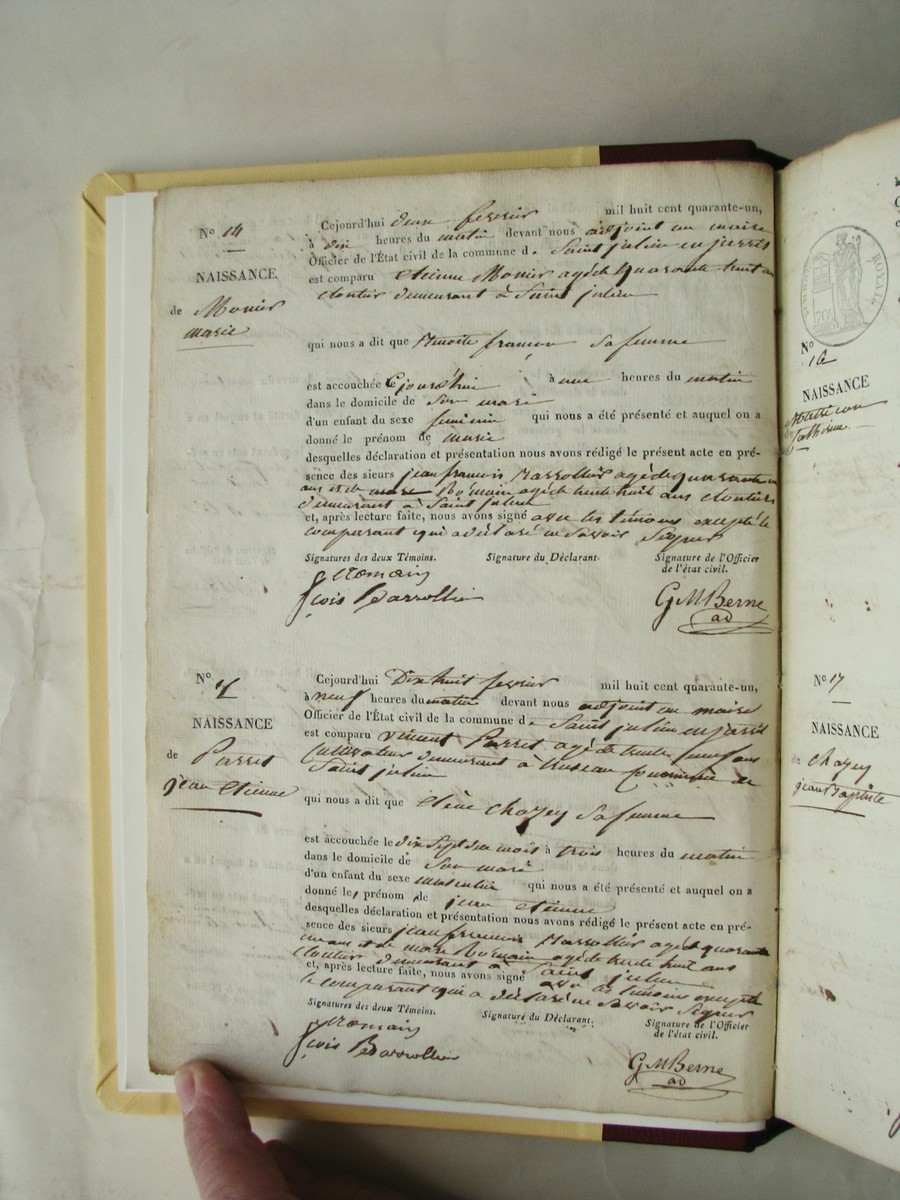 N° 14
NAISSANCE
de Monier
marie
Cejourd'hui deux fevrier mil huit cent quarante-un,
à dix heures du matin devant nous adjoint au maire
Officier de l'État civil de la commune d. Saint julien en jarret
est comparu etienne Monier agé de quarante huit ans
cloutier demeurant à Saint julien
qui nous a dit que françon sa femme
est accouchée Cejourd'hui à une heures du matin
dans le domicile de son mari
d'un enfant du sexe feminin qui nous a été présenté et auquel on a
donné le prénom de marie
desquelles déclaration et présentation nous avons rédigé le présent acte en pré-
sence des sieurs jean francois Barrollier agé de quarante un
ans et de marc Romain agé de trente huit ans cloutiers
demeurant à Saint julien
et, après lecture faite, nous avons signé avec les témoins excepté le
comparant qui a déclaré ne savoir Signer
Signatures des deux Témoins. Signature du Déclarant. Signature de l'Officier
de l'état civil.
Romain
fçois Barrollier
G M Berne
ad
N° 15
NAISSANCE
de Parret
jean etienne
Cejourd'hui Dix huit fevrier mil huit cent quarante-un,
à neuf heures du matin devant nous adjoint au maire
Officier de l'État civil de la commune d. Saint julien en jarret
est comparu vincent Parret agé de trente neuf ans
Cultivateur demeurant à Commune de
Saint julien
qui nous a dit que chazey sa femme
est accouchée le dix sept du mois à trois heures du matin
dans le domicile de son mari
d'un enfant du sexe masculin qui nous a été présenté et auquel on a
donné le prénom de jean etienne
desquelles déclaration et présentation nous avons rédigé le présent acte en pré-
sence des sieurs jean francois Barrollier agé de quarante
un ans et de marc Romain agé de trente huit ans
cloutier demeurant à Saint julien
et, après lecture faite, nous avons signé avec les témoins excepté
le comparant qui a déclaré ne savoir Signer
Signatures des deux Témoins. Signature du Déclarant. Signature de l'Officier
de l'état civil.
Romain
fçois Barrollier
G M Berne
ad
ROYAL
N° 16
NAISSANCE
de
Catherine
N° 17
NAISSANCE
de chazey
jean Baptiste